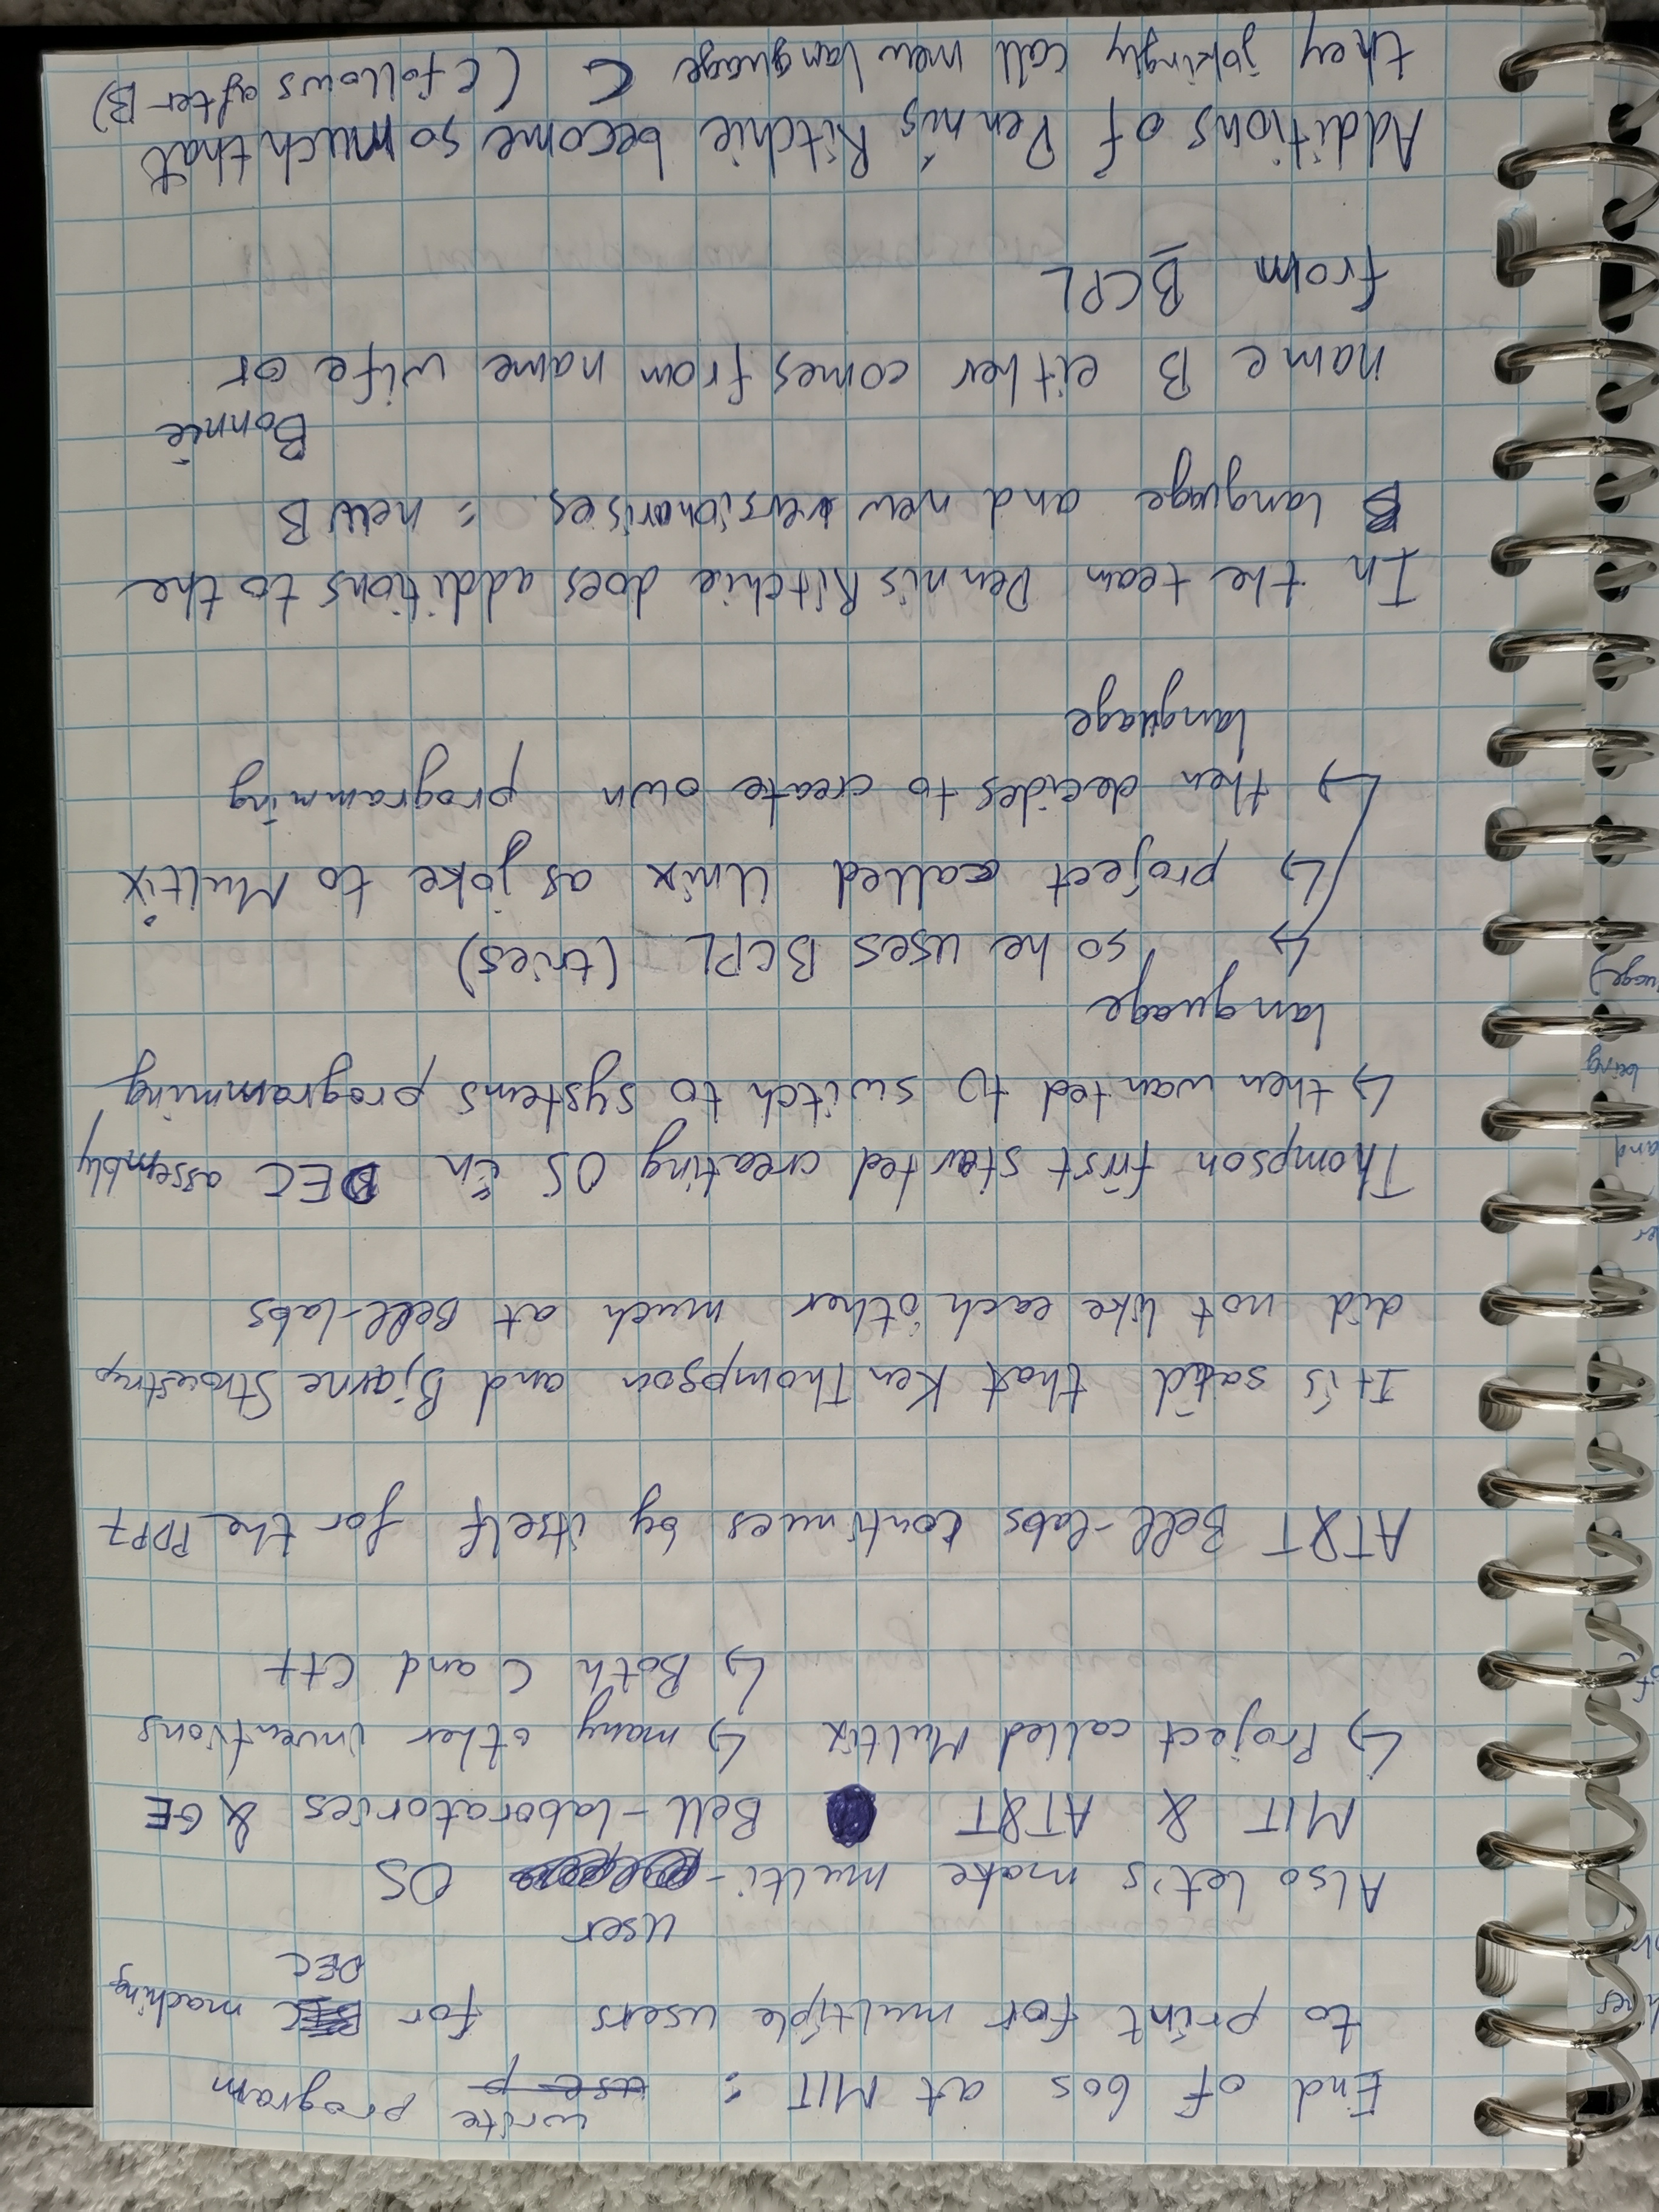 End of 60s at MIT : use p write program
to print for multiple users for DEC machines
DEC
user
Also let's make multi- OS
MIT & AT&T Bell-laboratories & GE
↳ Project called Multix ↳ many other inventions
↳ Both C and C++
AT&T Bell-labs continues by itself for the PDP7
It is said that Ken Thompson and Bjarne Stroustrup
did not like each other much at Bell-labs
Thompson first started creating OS in DEC assembly
↳ then wanted to switch to systems programming
language
↳ so he uses BCPL (tries)
↳ project called Unix as joke to Multix
↳ then decides to create own programming
language
In the team Dennis Ritchie does additions to the
B language and new version arises = new B
Bonnie
name B either comes from name wife or
from BCPL
Additions of Dennis Ritchie become so much that
they jokingly call new language C (C follows after B)
er
and
being
uage)